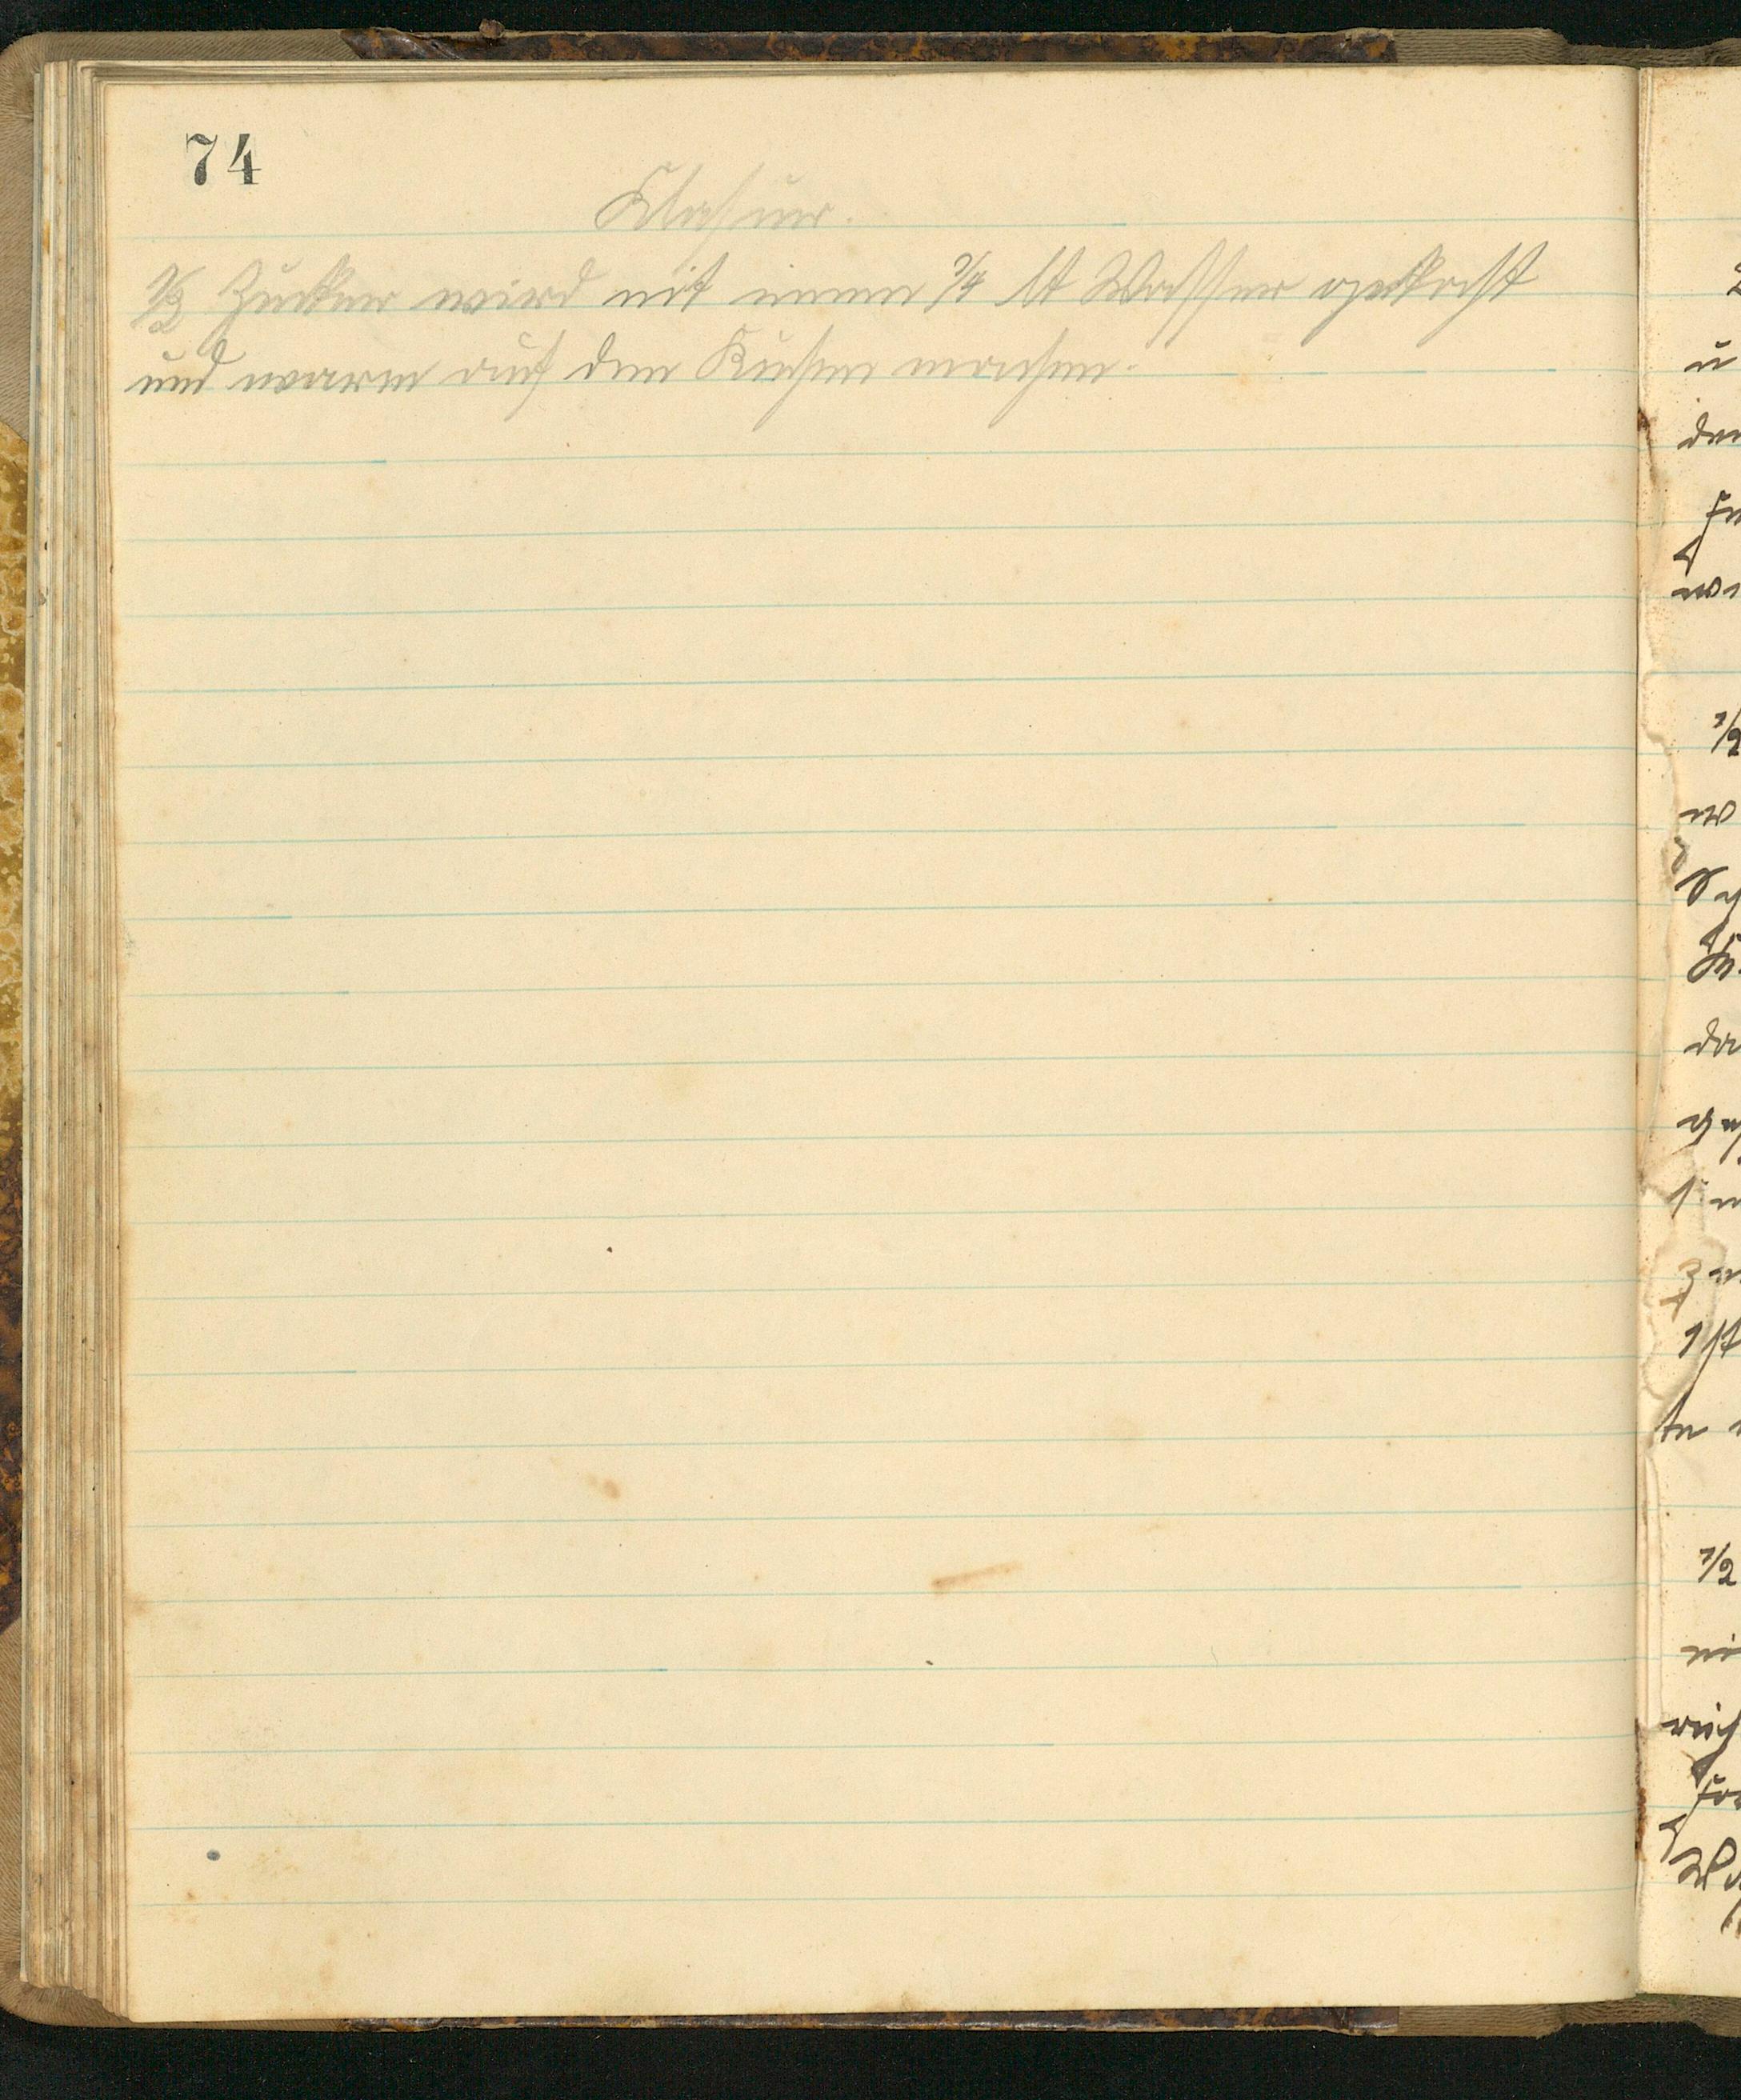 74
Klasur.
1/2 Zucker wird mit einem 1/4 lt Wasser gekocht
und warm auf den Kuchen machen.
1/2
1/2